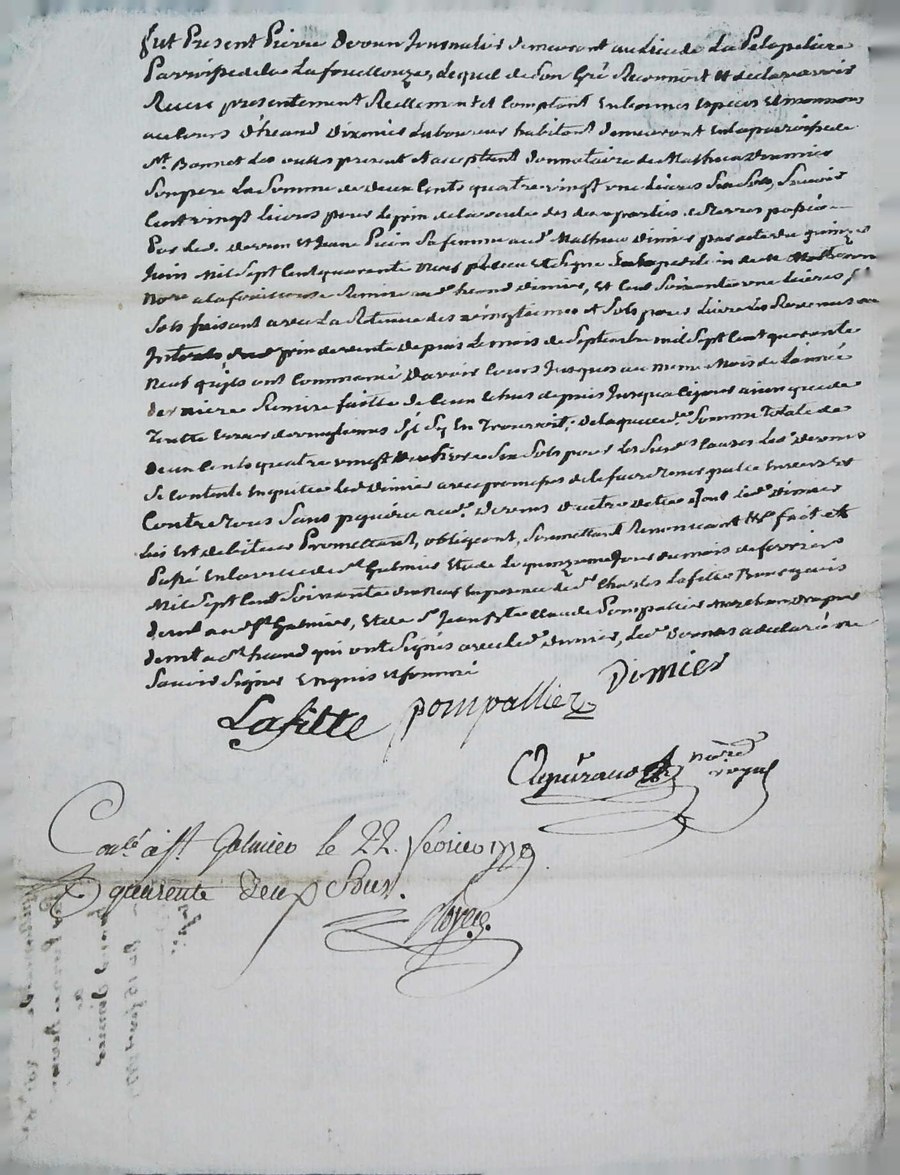 fut Present Pierre Deroun Journalier demeurant au Lieu de La Pelapeliere
Parroisse de La fouillouze, Lequel de Son Gré Reconnoit et declare avoir
Receu presentement Reellement et Comptant En bonnes Especes Et monnoyes
au Cours D'heand Dixmier Laboureur habitant demeurant En la parroisse de
St. Bonnet Les oules present et acceptant donnataire de Mathieu Dimier
Son pere La Somme de deux Cents quatre vingt une Livres Six Sols, Sçavoir
Cent vingt Livres pour Le prix de la vente des deux parties de Terres passée
Par Led. derron Et Jeane Son Sa femme aud. Mathieu Dimier par acte du quinze
Juin Mil Sept Cent quarente neuf Receu Et Signe
Nore a La fouillouse Remise aud. heand dimier, Et Cent Soixante une Livres
Sols faisant avec La Retenue des vingtiemes et Sols pour Livre Les Revenus ou
Interets dud. prix de vente depuis Le mois de Septembre mil Sept Cent quarente
Neuf quils ont Commancé D'avoir Cours Jusques au meme Mois de L'année
derniere Remise faitte de Ceux Echus depuis Jusqu'a Ce jour ainsi que de
Toutte Erreur de vingtiemes Sil Sy En Trouvoit; De Laquelle de. Somme Totale de
Deux Cents quatre vingt une Livre Six Sols pour Les Susd. Causes Led. Derons
Se contente En quitte Led. Dimier avec promesse de Le faire Tenir quitte Envers Et
Contre Tous Sans prejudice aud. Derons D'autre dette dont Led. Dimier
Lui Est debiteur Promettant, obligeant, Soumettant Renonceant &c fait et
Passé En La ville de St. Galmier Etude Le quinzieme Jour du mois de fevrier
Mil Sept Cent Soixante dix Neuf En presence de Sr. Charles Lafitte Bourgeois
demt. aud. St. Galmier, Et de Sr. Jean Bte. Claude Pompallier Marchand Drapier
demt. a St. heand qui ont Signés avec Led. dimier, Led. Derons a declaré ne
Savoir Signer Enquis et Sommé
Lafitte Pompallier Dimier
nore
royal
Conlé. à St. Galmier le 22. Fevrier 1779
R quarente deux Sous.